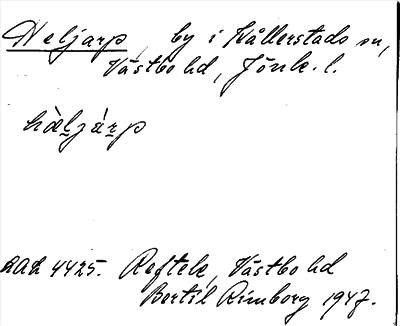 Heljarp, by i Kållerstads sn,
Västbo hd, Jönk. l.
hàljàrp
AAL 4425. Reftele, Västbo hd
Bertil Rimborg 1947.